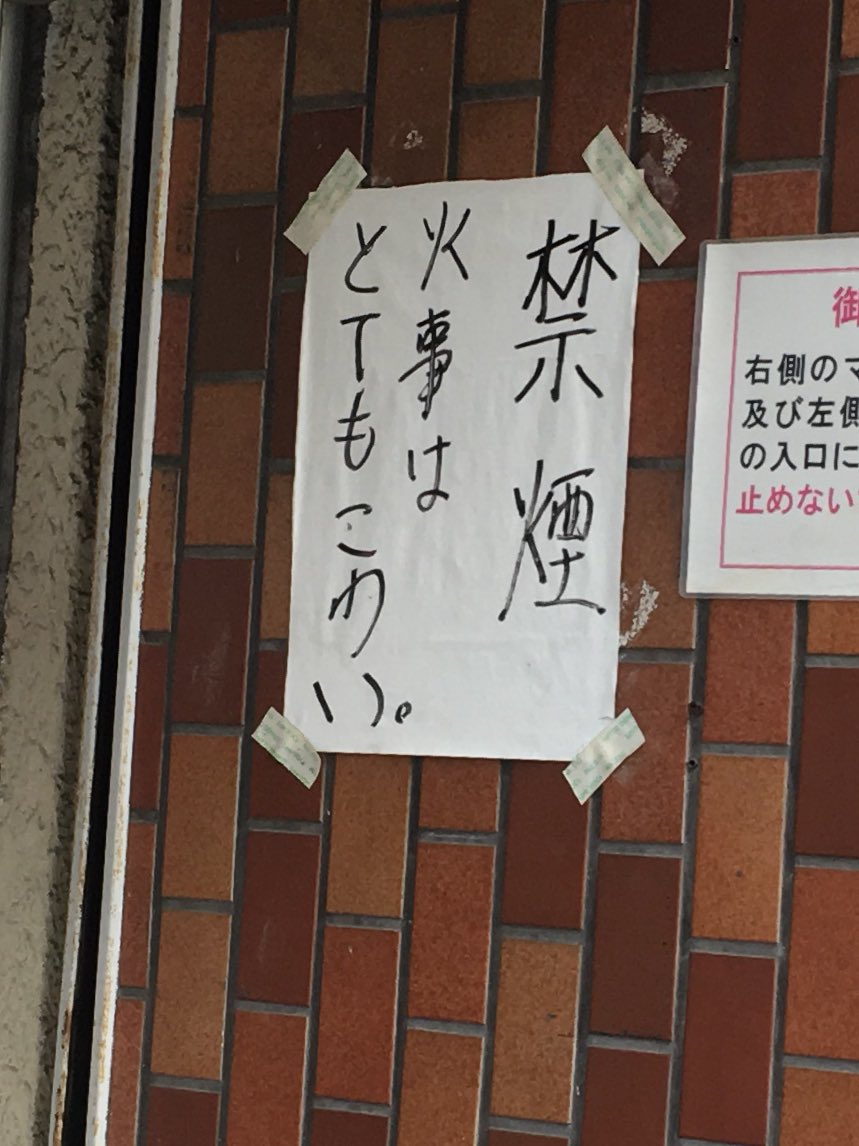 禁煙
火事は
とてもこわい。
御
右側のマ
及び左側
の入口に
止めない